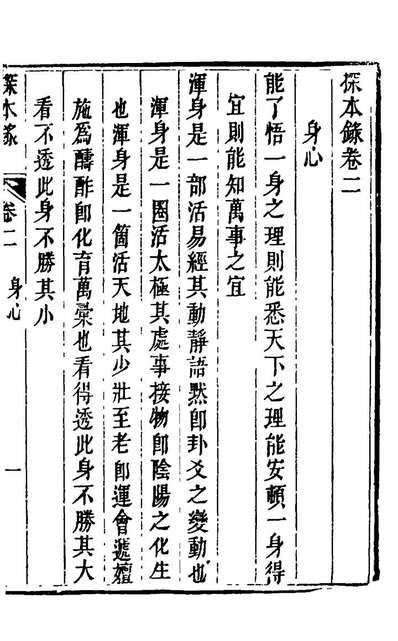 探本錄卷二
身心
能了悟一身之理則能悉天下之理能安頓一身得
宜則能知萬事之宜
渾身是一部活易經其動靜語默卽卦爻之變動也
渾身是一圈活太極其處事接物卽陰陽之化生
也渾身是一箇活天地其少壯至老卽運會遞嬗
施爲醻酢卽化育萬彙也看得透此身不勝其大
看不透此身不勝其小
探本錄
卷二
身心
一